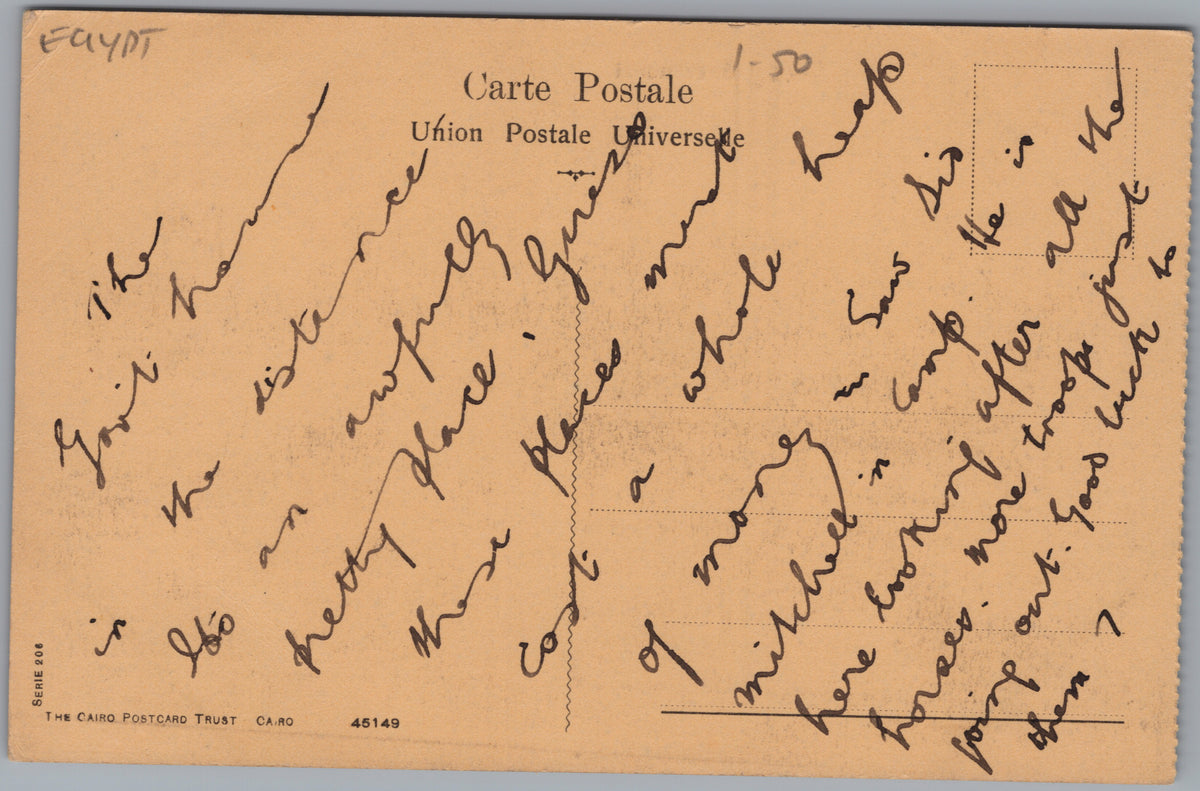 EGYPT
1-50
Carte Postale
Union Postale Universelle
The
Govt.
in the distance
Its an awfully
pretty place. Guess
these places must
cost a whole heap
of money in Saw Sid
Mitchell in camp. He is
here looking after all the
horses. More troops just
going out. Good luck to
them J
SERIE 206
THE CAIRO POSTCARD TRUST CAIRO 45149